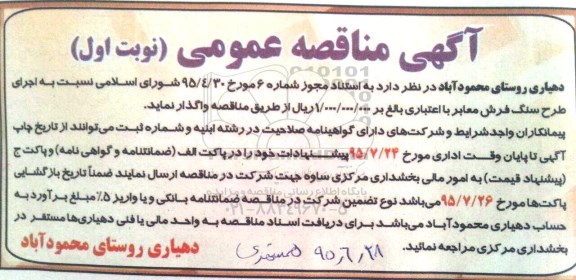 آگهی مناقصه عمومی (نوبت اول)
دهیاری روستای محمودآباد در نظر دارد به استناد مجوز شماره ۶ مورخ ۹۵/٤/۳۰ شورای اسلامی نسبت به اجرای
طرح سنگ فرش معابر با اعتباری بالغ بر ۱/۰۰۰/۰۰۰/۰۰۰ ریال از طریق مناقصه واگذار نماید.
پیمانکاران واجد شرایط و شرکت‌های دارای گواهینامه صلاحیت در رشته ابنیه و شماره ثبت می‌توانند از تاریخ چاپ
آگهی تا پایان وقت اداری مورخ ۹۵/۷/۲۴ پیشنهادات خود را در پاکت الف (ضمانتنامه و گواهی نامه) و پاکت ج
(پیشنهاد قیمت) به امور مالی بخشداری مرکزی ساوه جهت شرکت در مناقصه ارسال نمایند ضمناً تاریخ بازگشایی
پاکت‌ها مورخ ۹۵/۷/۲۶ می‌باشد نوع تضمین شرکت در مناقصه ضمانتنامه بانکی و یا واریز ۵٪ مبلغ برآورد به
حساب دهیاری محمودآباد می‌باشد برای دریافت اسناد مناقصه به واحد مالی یا فنی دهیاری‌ها مستقر در
بخشداری مرکزی مراجعه نمائید.
دهیاری روستای محمودآباد
پایگاه اطلاع رسانی مناقصه و مزایده
۰۲۱-۸۸۳۴۹۶۷۰-۵